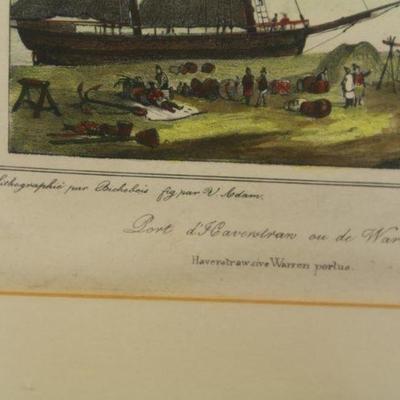 Lithographié par Bichebois fig. par V. Adam.
Port d'Haverstran ou de War
Haverstraw sive Warren portus.